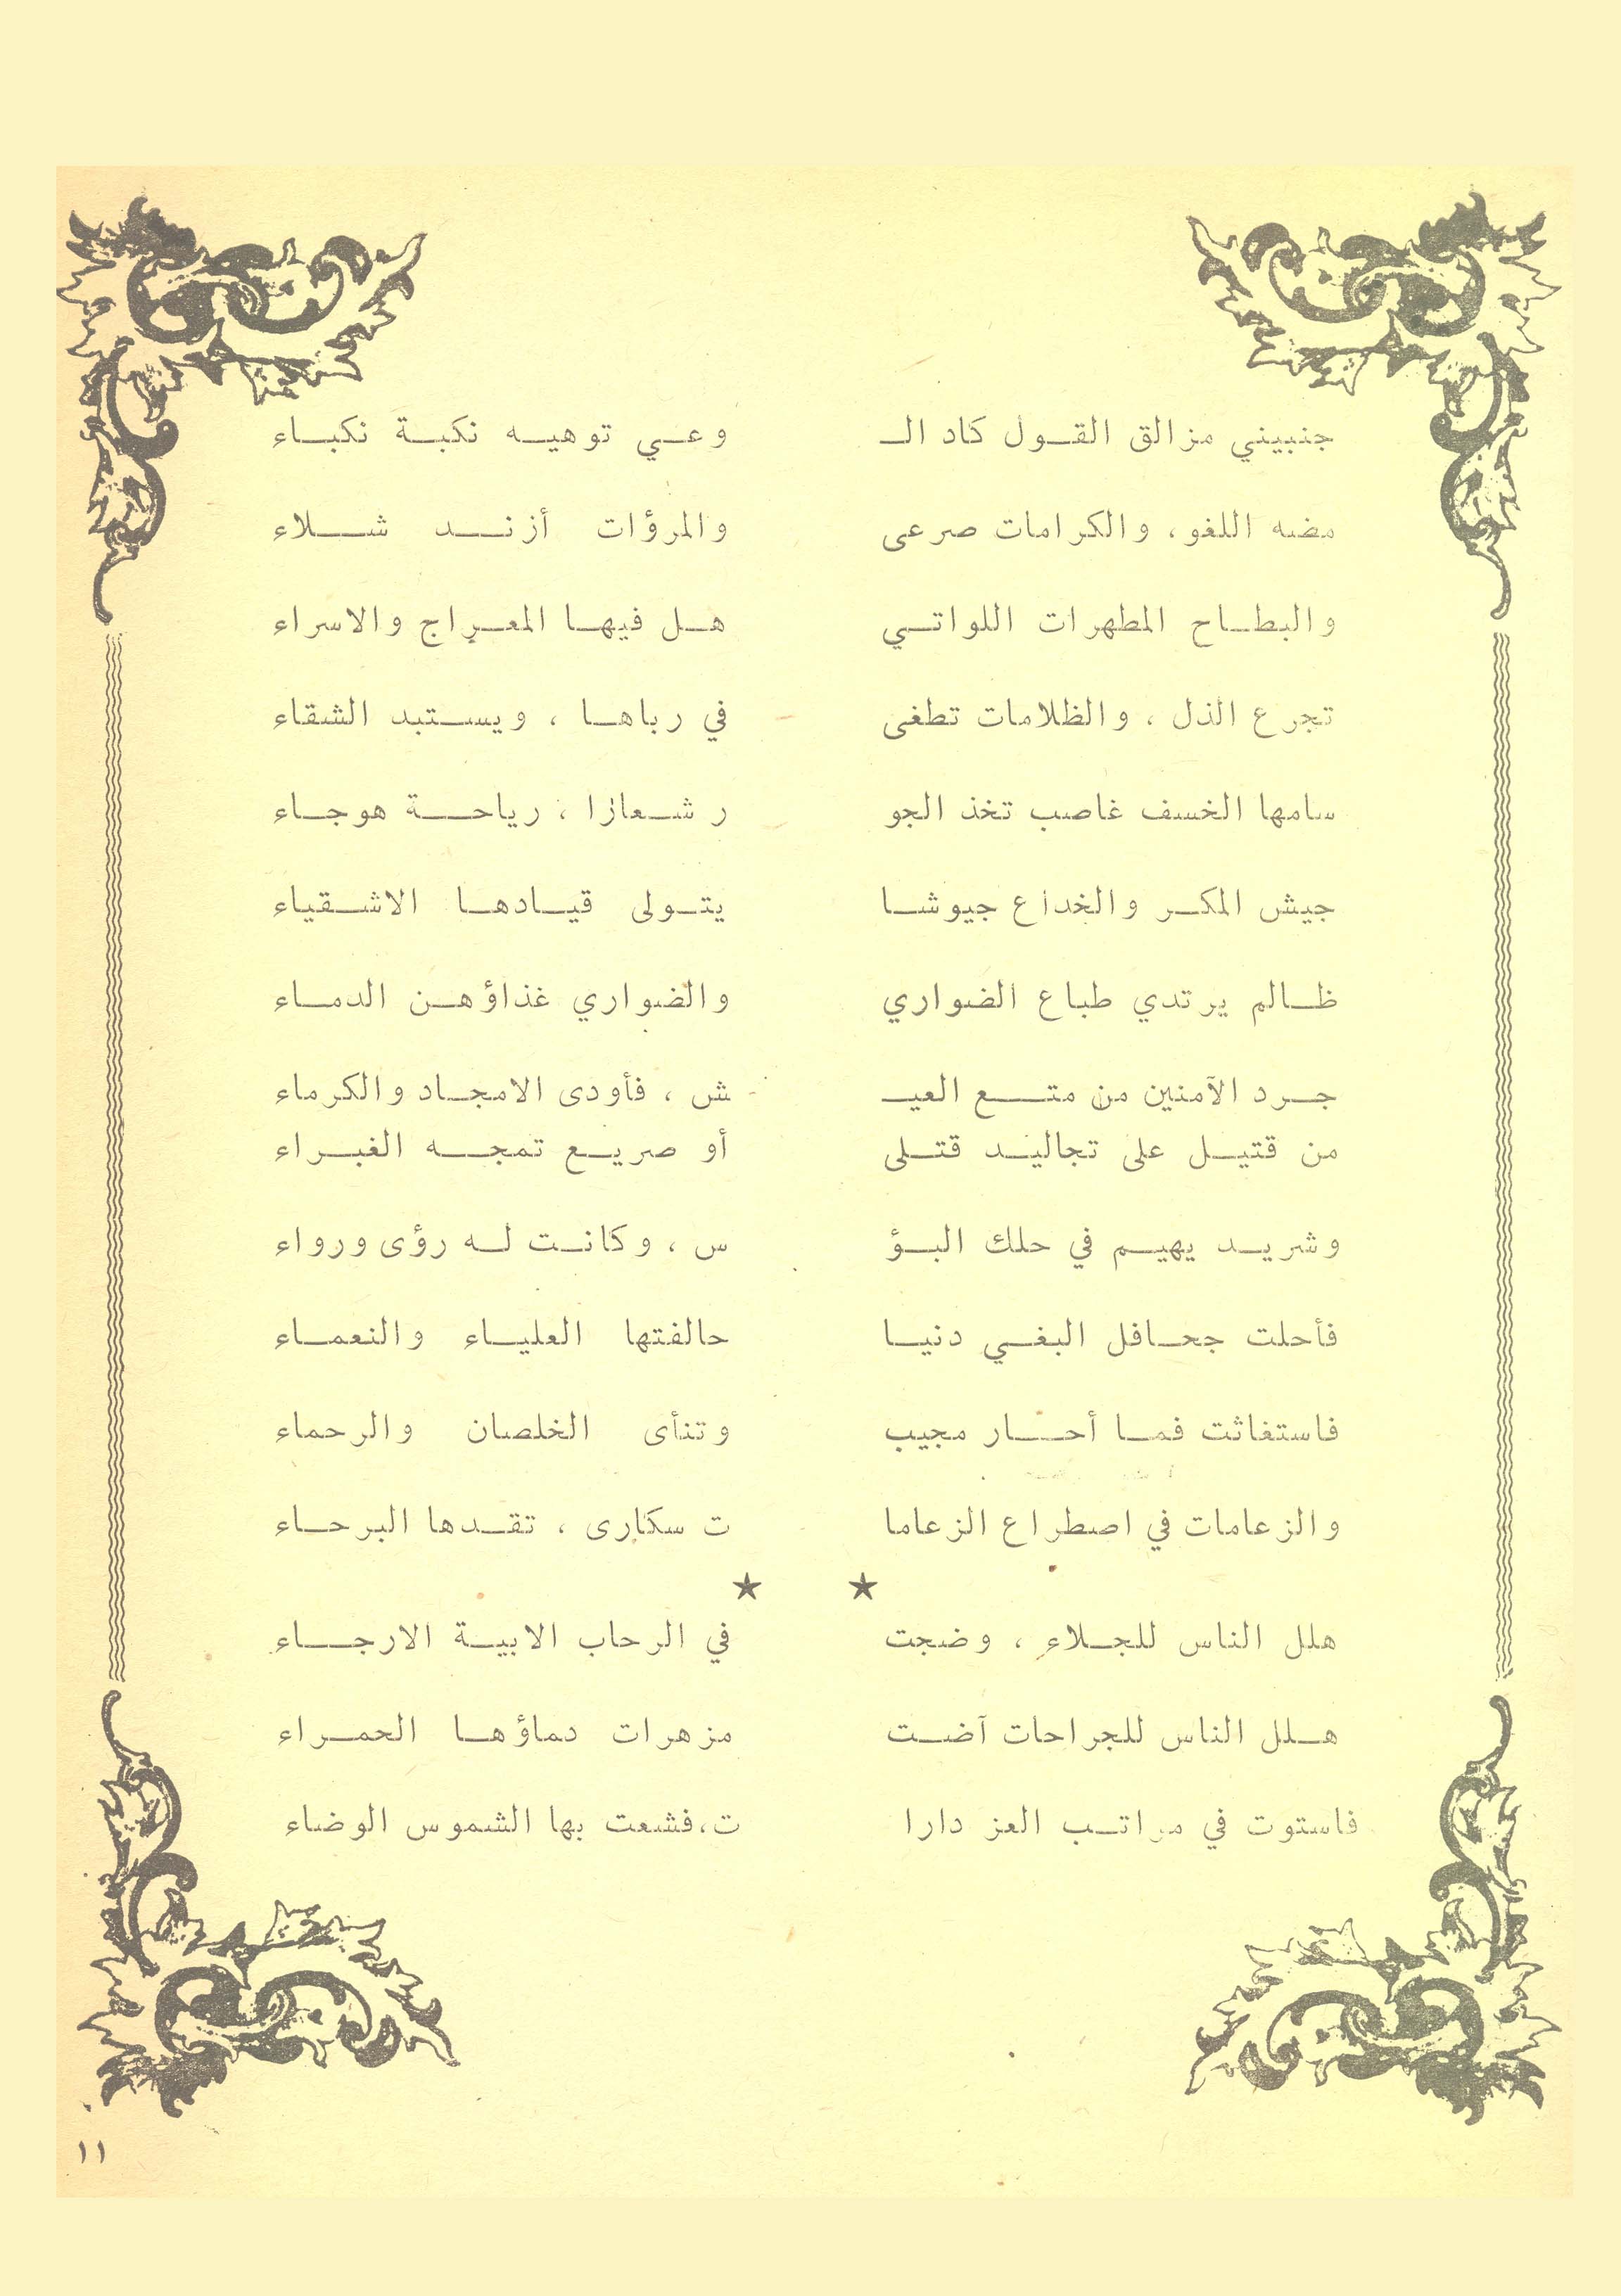 جنبيني مزالق القول كاد الـ وعي توهيه نكبة نكباء
مضه اللغو، والكرامات صرعى والمرؤات أزند شلاء
والبطاح المطهرات اللواتي هل فيها المعراج والاسراء
تجرع الذل ، والظلامات تطغى في رباها ، ويستبد الشقاء
سامها الخسف غاصب تخذ الجو ر شعارا ، رياحة هوجاء
جيش المكر والخداع جيوشا يتولى قيادها الاشقياء
ظالم يرتدي طباع الضواري والضواري غذاؤهن الدماء
جرد الآمنين من متع العيـ ش ، فأودى الامجاد والكرماء
من قتيل على تجاليد قتلى أو صريع تمجه الغبراء
وشريد يهيم في حلك البؤ س ، وكانت له رؤى ورواء
فأحلت جحافل البغي دنيا حالفتها العلياء والنعماء
فاستغاثت فما أحار مجيب وتنأى الخلصان والرحماء
والزعامات في اصطراع الزعاما ت سكارى ، تقدها البرحاء
★ ★
هلل الناس للجلاء ، وضجت في الرحاب الابية الارجاء
هلل الناس للجراحات آضت مزهرات دماؤها الحمراء
فاستوت في مراتب العز دارا ت،فشعت بها الشموس الوضاء
١١